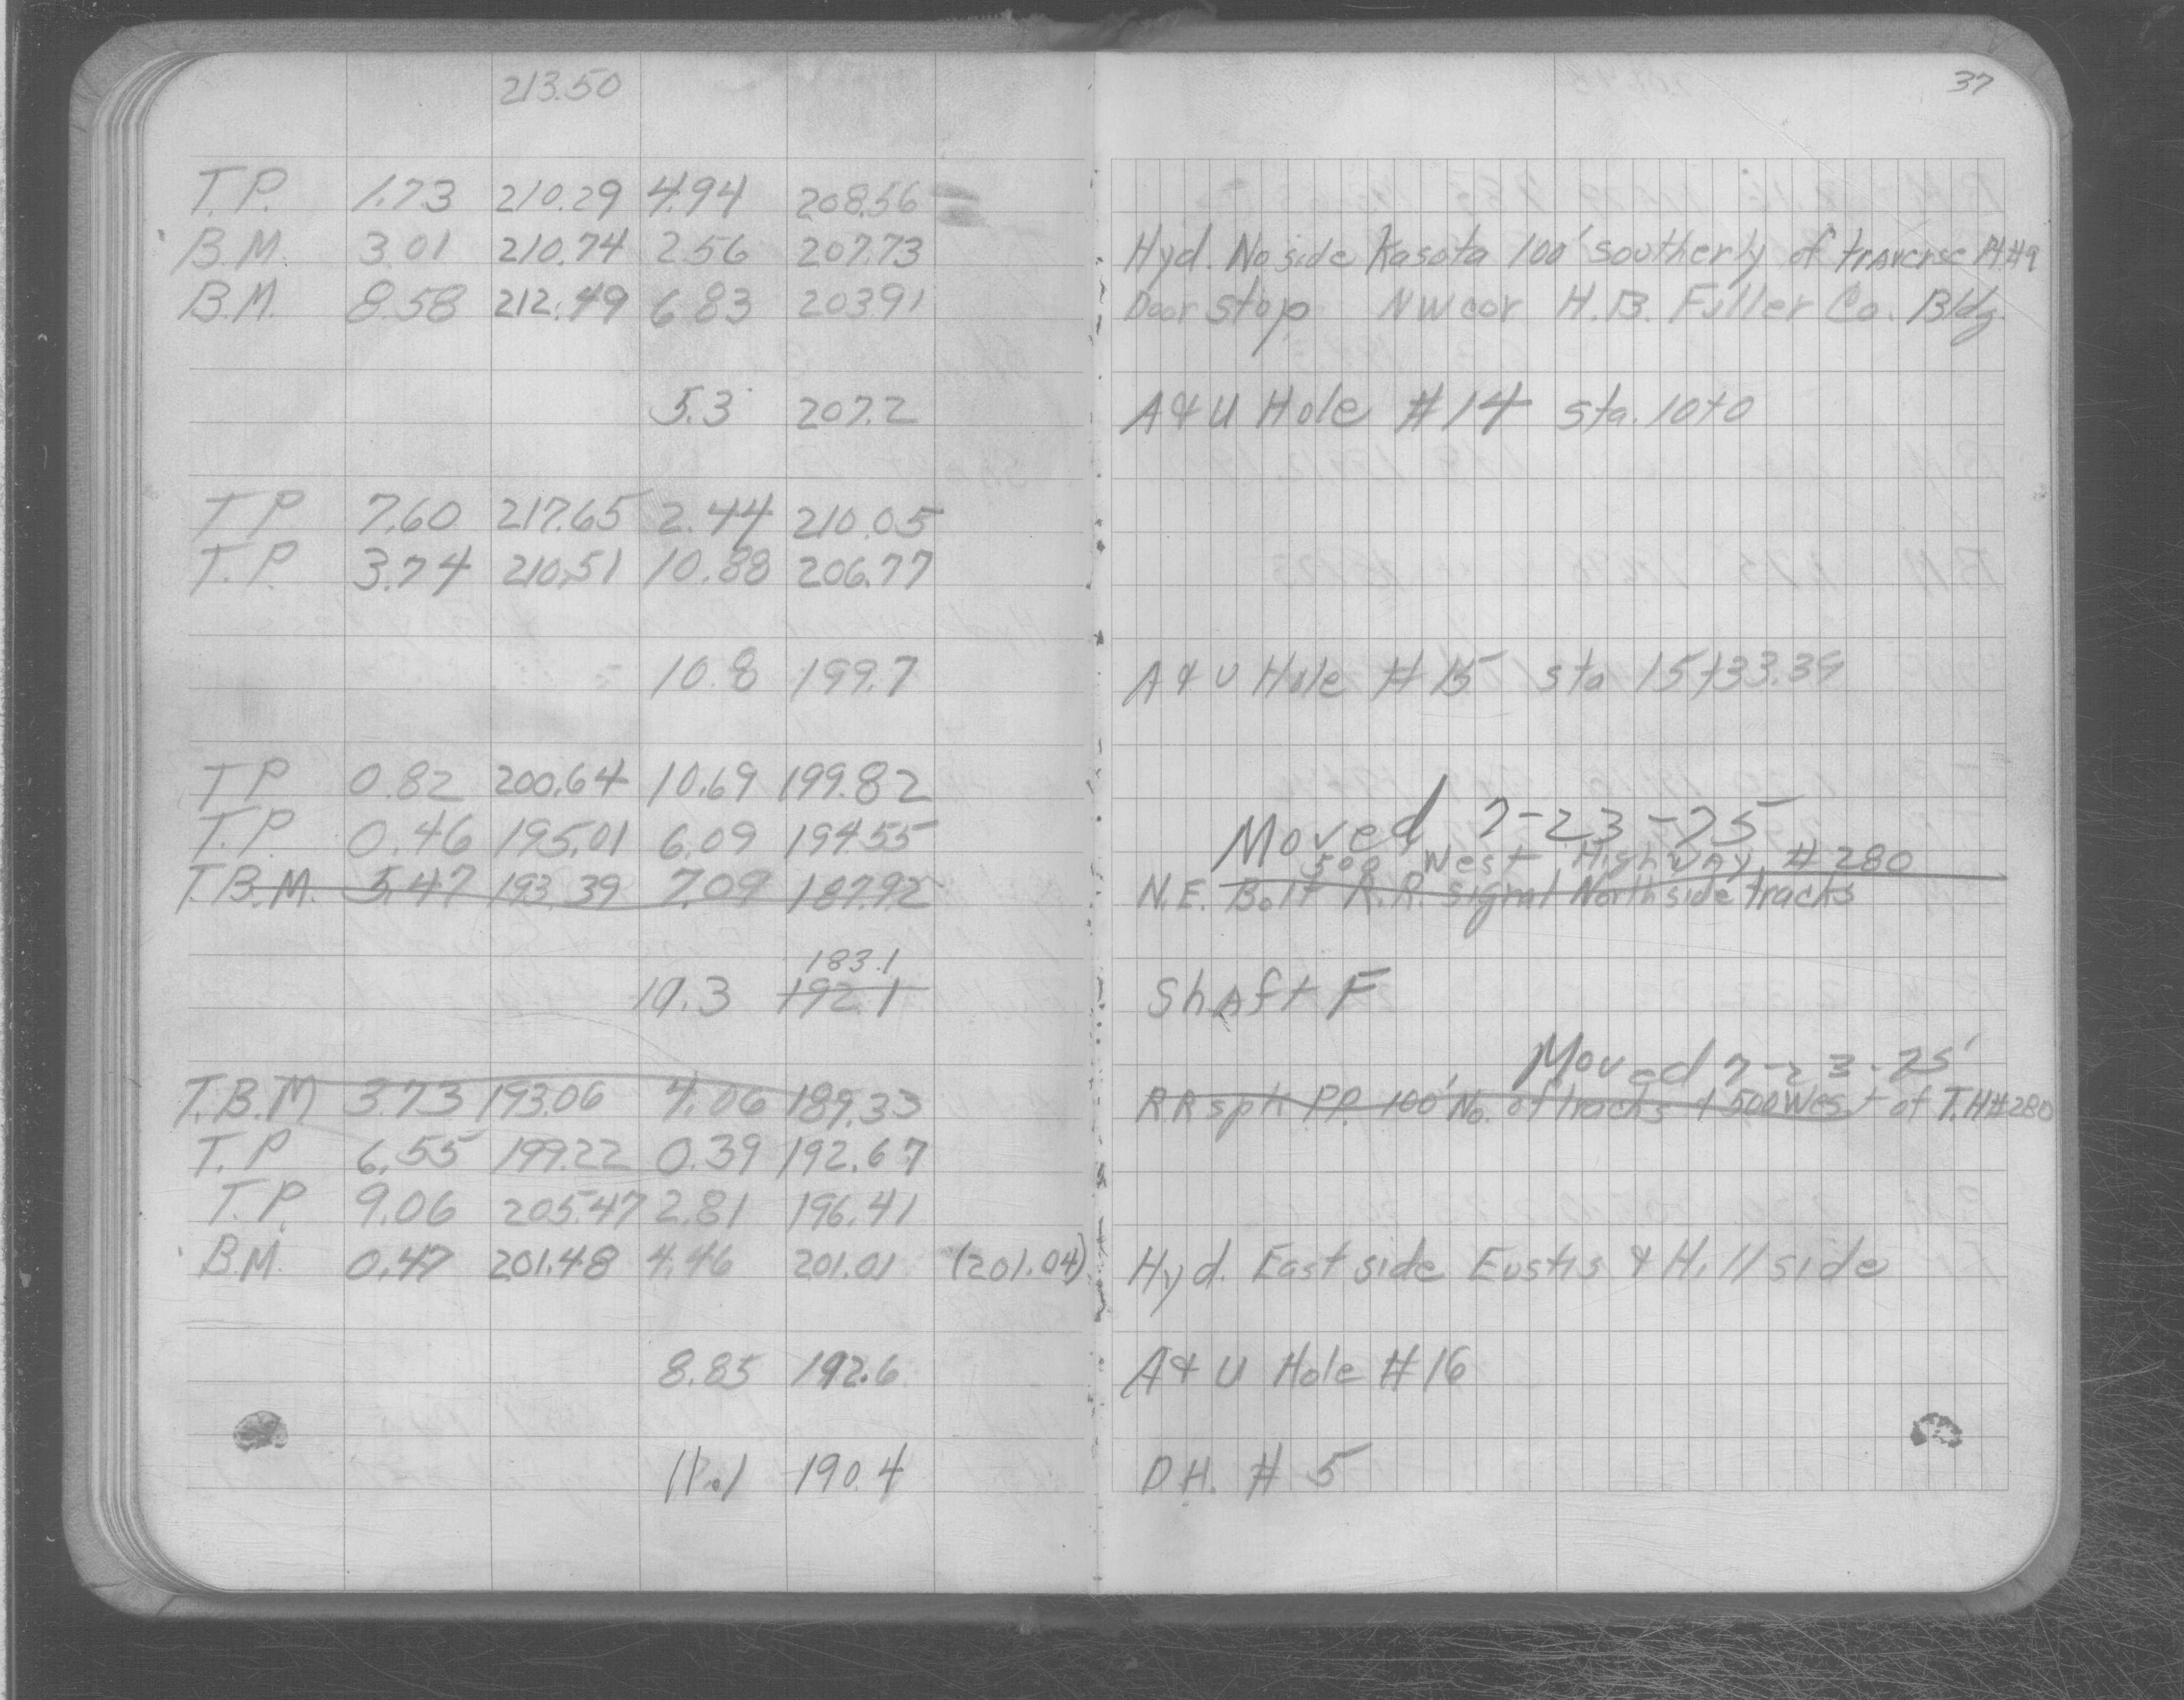 213.50
37
T.P. 1.73 210.29 4.94 208.56
B.M. 3.01 210.74 2.56 207.73 Hyd. No side Kasota 100' southerly of traverse Pt #9
B.M. 8.58 212.49 6.83 203.91 Door stop NW cor H.B. Fuller Co. Bldg.
5.3 207.2 A & U Hole #14 sta. 10+0
T.P 7.60 217.65 2.44 210.05
T.P. 3.74 210.51 10.88 206.77
10.8 199.7 A & U Hole #15 sta 15+33.39
T P 0.82 200.64 10.69 199.82
T.P. 0.46 195.01 6.09 194.55 Moved 7-23-75
500 West Highway #280
T.B.M. 5.47 193.39 7.09 187.92 N.E. Bolt R.R. signal North side tracks
183.1
10.3 192.1 Shaft F
Moved 7-23-75
T.B.M 3.73 193.06 4.06 189.33 R.R spk P.P. 100' No. of tracks & 500 West of T.H#280
T.P 6.55 199.22 0.39 192.67
T.P. 9.06 205.47 2.81 196.41
B.M. 0.47 201.48 4.46 201.01 (201.04) Hyd. East side Eustis & Hillside
8.85 192.6 A & U Hole #16
11.1 190.4 D.H. # 5